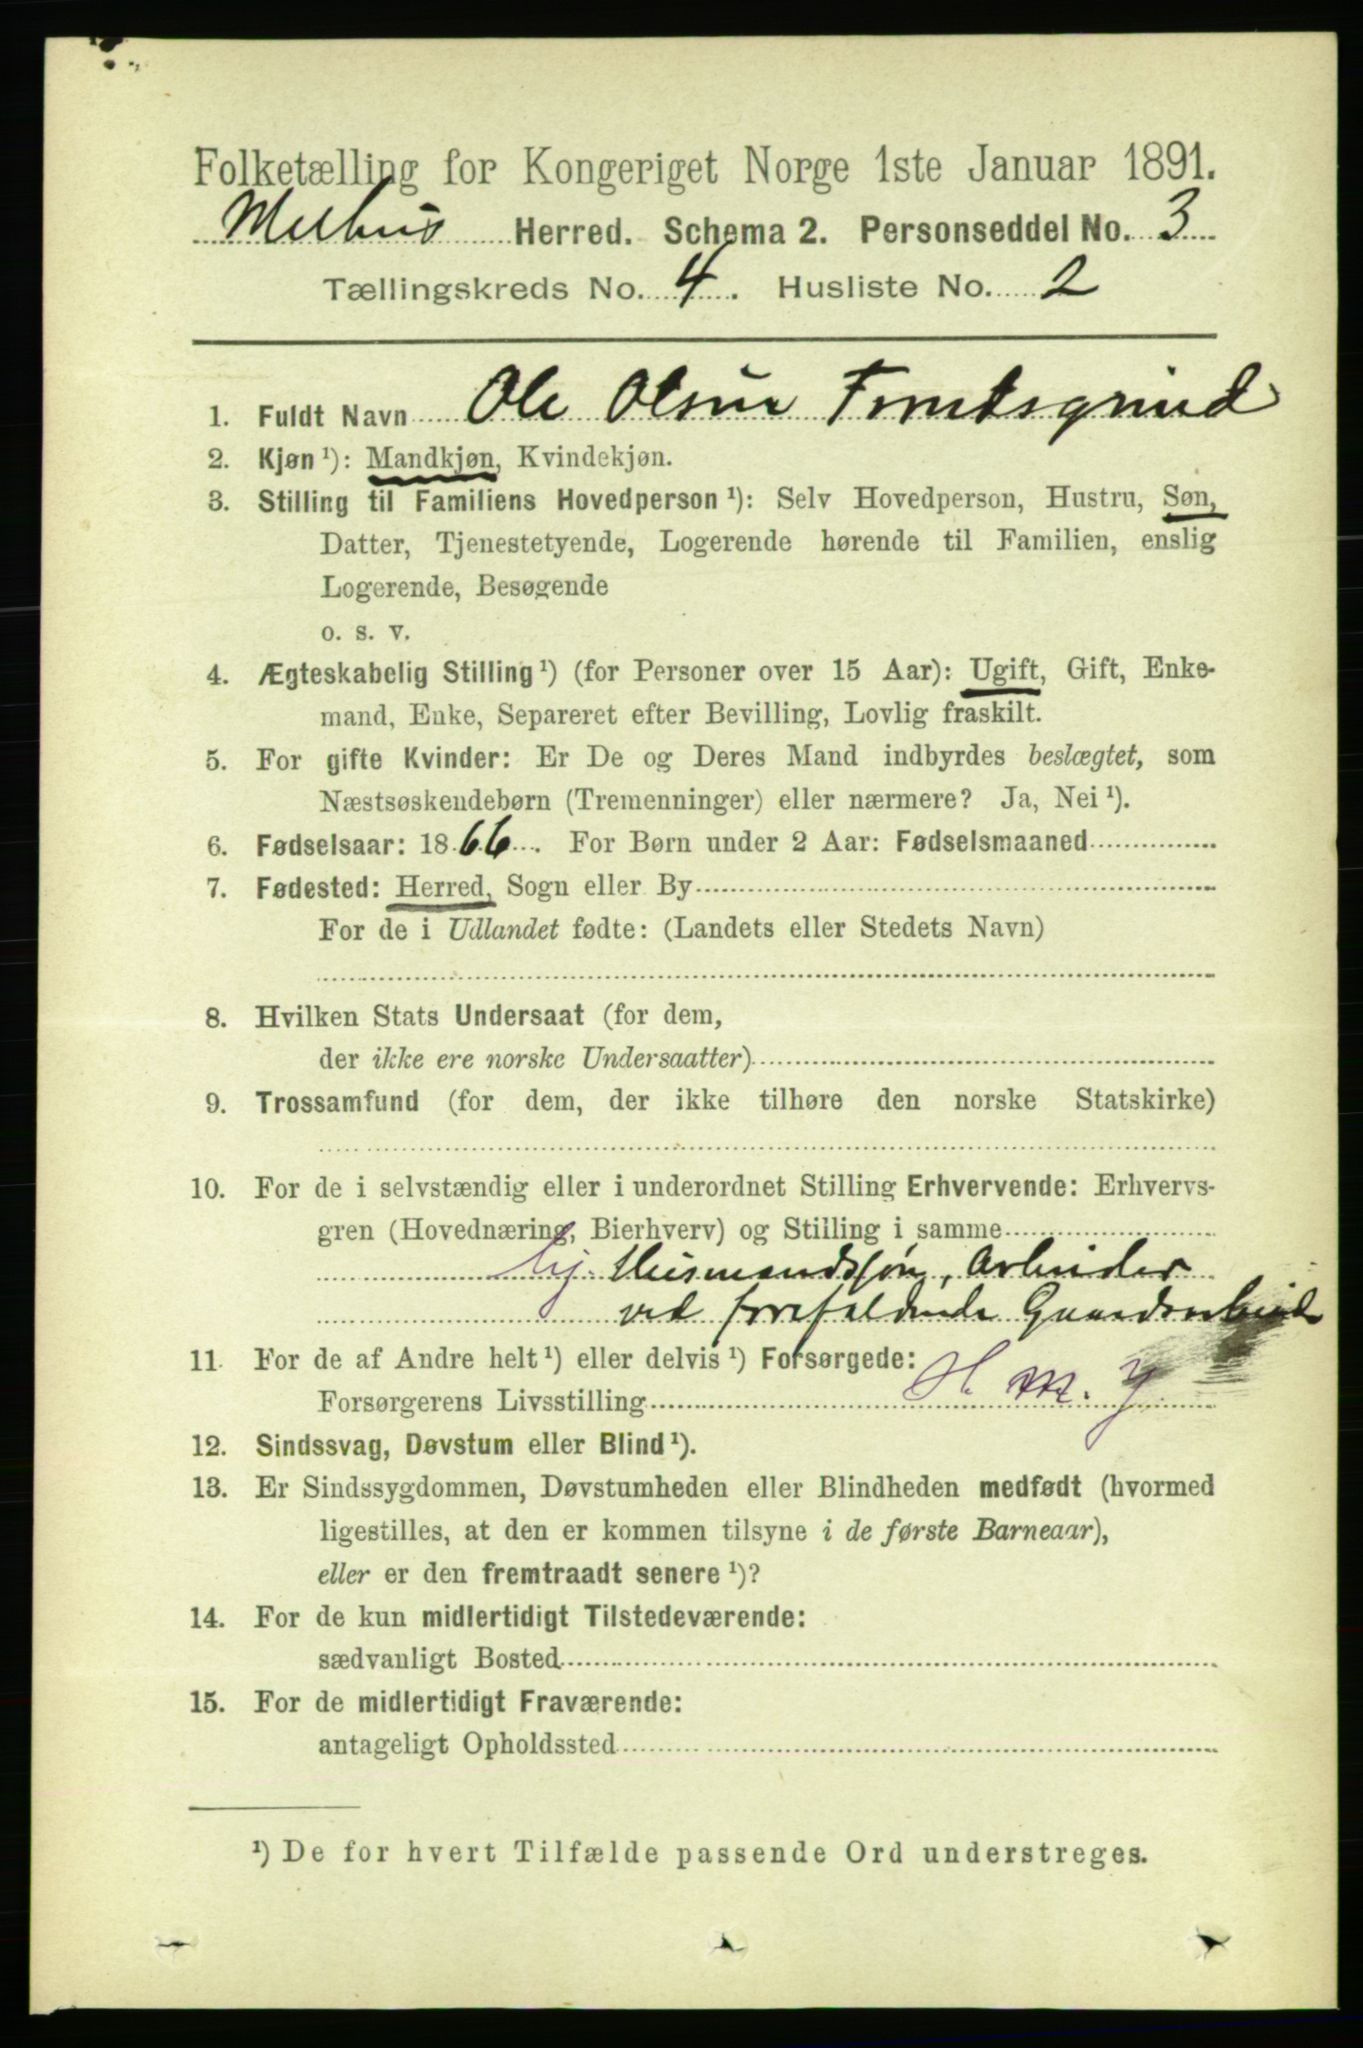 Folketælling for Kongeriget Norge 1ste Januar 1891.
Melhus Herred. Schema 2. Personseddel No. 3
Tællingskreds No. 4. Husliste No. 2
1. Fuldt Navn Ole Olsen
2. Kjøn ¹): Mandkjøn, Kvindekjøn.
3. Stilling til Familiens Hovedperson ¹): Selv Hovedperson, Hustru, Søn,
Datter, Tjenestetyende, Logerende hørende til Familien, enslig
Logerende, Besøgende
o. s. v.
4. Ægteskabelig Stilling ¹) (for Personer over 15 Aar): Ugift, Gift, Enke-
mand, Enke, Separeret efter Bevilling, Lovlig fraskilt.
5. For gifte Kvinder: Er De og Deres Mand indbyrdes beslægtet, som
Næstsøskendebørn (Tremenninger) eller nærmere? Ja, Nei ¹).
6. Fødselsaar: 1866. For Børn under 2 Aar: Fødselsmaaned
7. Fødested: Herred, Sogn eller By
For de i Udlandet fødte: (Landets eller Stedets Navn)
8. Hvilken Stats Undersaat (for dem,
der ikke ere norske Undersaatter)
9. Trossamfund (for dem, der ikke tilhøre den norske Statskirke)
10. For de i selvstændig eller i underordnet Stilling Erhvervende: Erhvervs-
gren (Hovednæring, Bierhverv) og Stilling i samme
Husmandssøn, Arbeider
ved forefaldende Gaardsarbeide
11. For de af Andre helt ¹) eller delvis ¹) Forsørgede:
Forsørgerens Livsstilling H. m. J.
12. Sindssvag, Døvstum eller Blind ¹).
13. Er Sindssygdommen, Døvstumheden eller Blindheden medfødt (hvormed
ligestilles, at den er kommen tilsyne i de første Barneaar),
eller er den fremtraadt senere ¹)?
14. For de kun midlertidigt Tilstedeværende:
sædvanligt Bosted
15. For de midlertidigt Fraværende:
antageligt Opholdssted
¹) De for hvert Tilfælde passende Ord understreges.